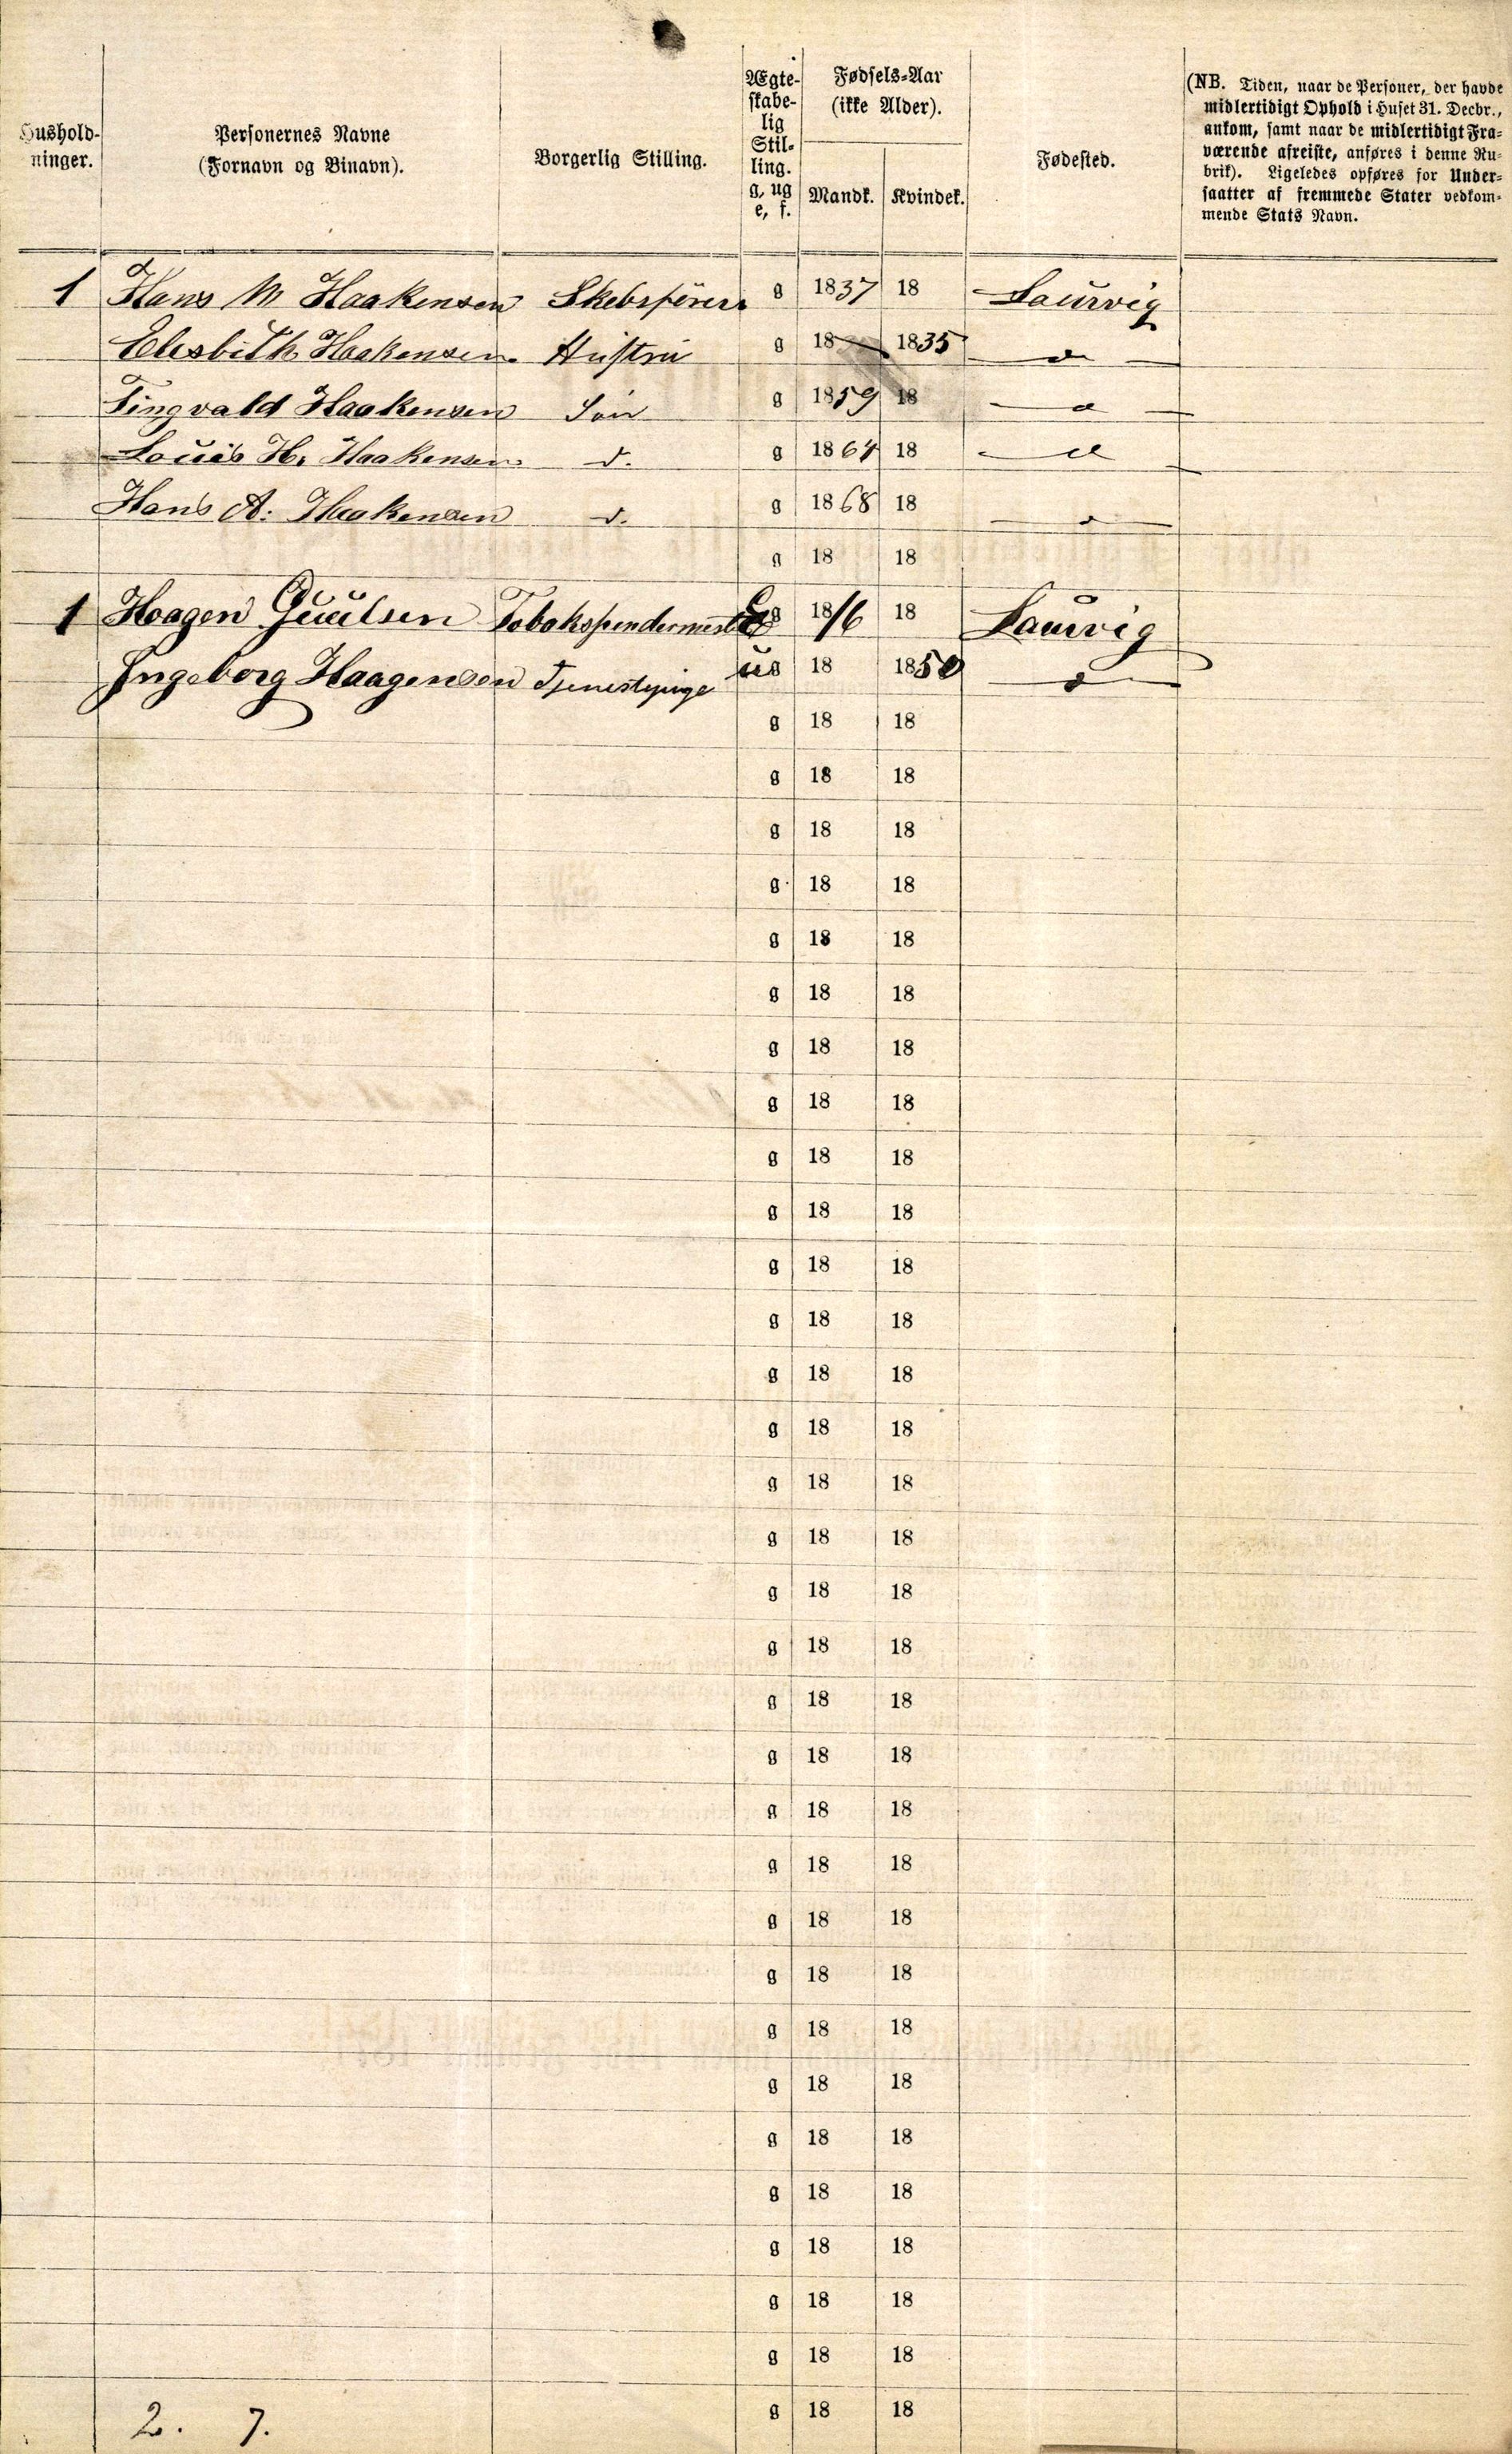 Hushold-
ninger.
Personernes Navne
(Fornavn og Binavn).
Borgerlig Stilling.
Ægte-
skabe-
lig
Stil-
ling.
g, ug
e, f.
Fødsels-Aar
(ikke Alder).
Mandk. Kvindek.
Fødested.
(NB. Tiden, naar de Personer, der havde
midlertidigt Ophold i Huset 31. Decbr.,
ankom, samt naar de midlertidigt Fra-
værende afreiste, anføres i denne Ru-
brik). Ligeledes opføres for Under-
saatter af fremmede Stater vedkom-
mende Stats Navn.
1 Hans M Haakensen Skebsförer g 1837 18 Laurvig
Elesbith Haakensen Hustru g 18 1835 d
Tingvald Haakensen Sön g 1859 18 d
Louis H. Haakensen d. g 1864 18 d
Hans A. Haakensen d. g 1868 18 d
g 18 18
1 Haagen Juulsen Tobakspindermester 1816 18 Laurvig
Ingeborg Haagensen Tjenestepige ug 18 1850 d
g 18 18
g 18 18
g 18 18
g 18 18
g 18 18
g 18 18
g 18 18
g 18 18
g 18 18
g 18 18
g 18 18
g 18 18
g 18 18
g 18 18
g 18 18
g 18 18
g 18 18
g 18 18
g 18 18
g 18 18
g 18 18
g 18 18
g 18 18
g 18 18
g 18 18
g 18 18
g 18 18
g 18 18
g 18 18
g 18 18
g 18 18
2. 7. g 18 18